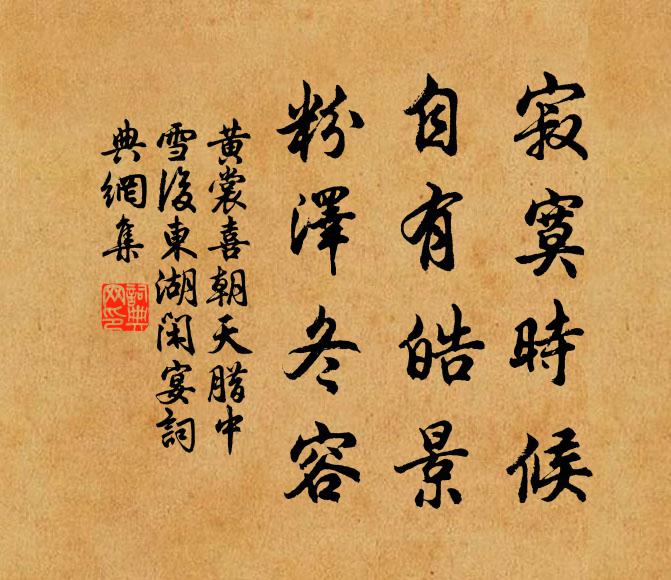 寂寞時候
自有皓景
粉澤冬容
黃裳喜朝天腊中
雪後東湖閑宴詞
典網集
詞典網印